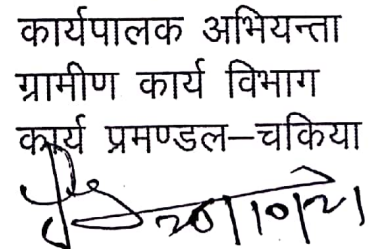 कार्यपालक अभियन्ता
ग्रामीण कार्य विभाग
कार्य प्रमण्डल–चकिया
20/10/21